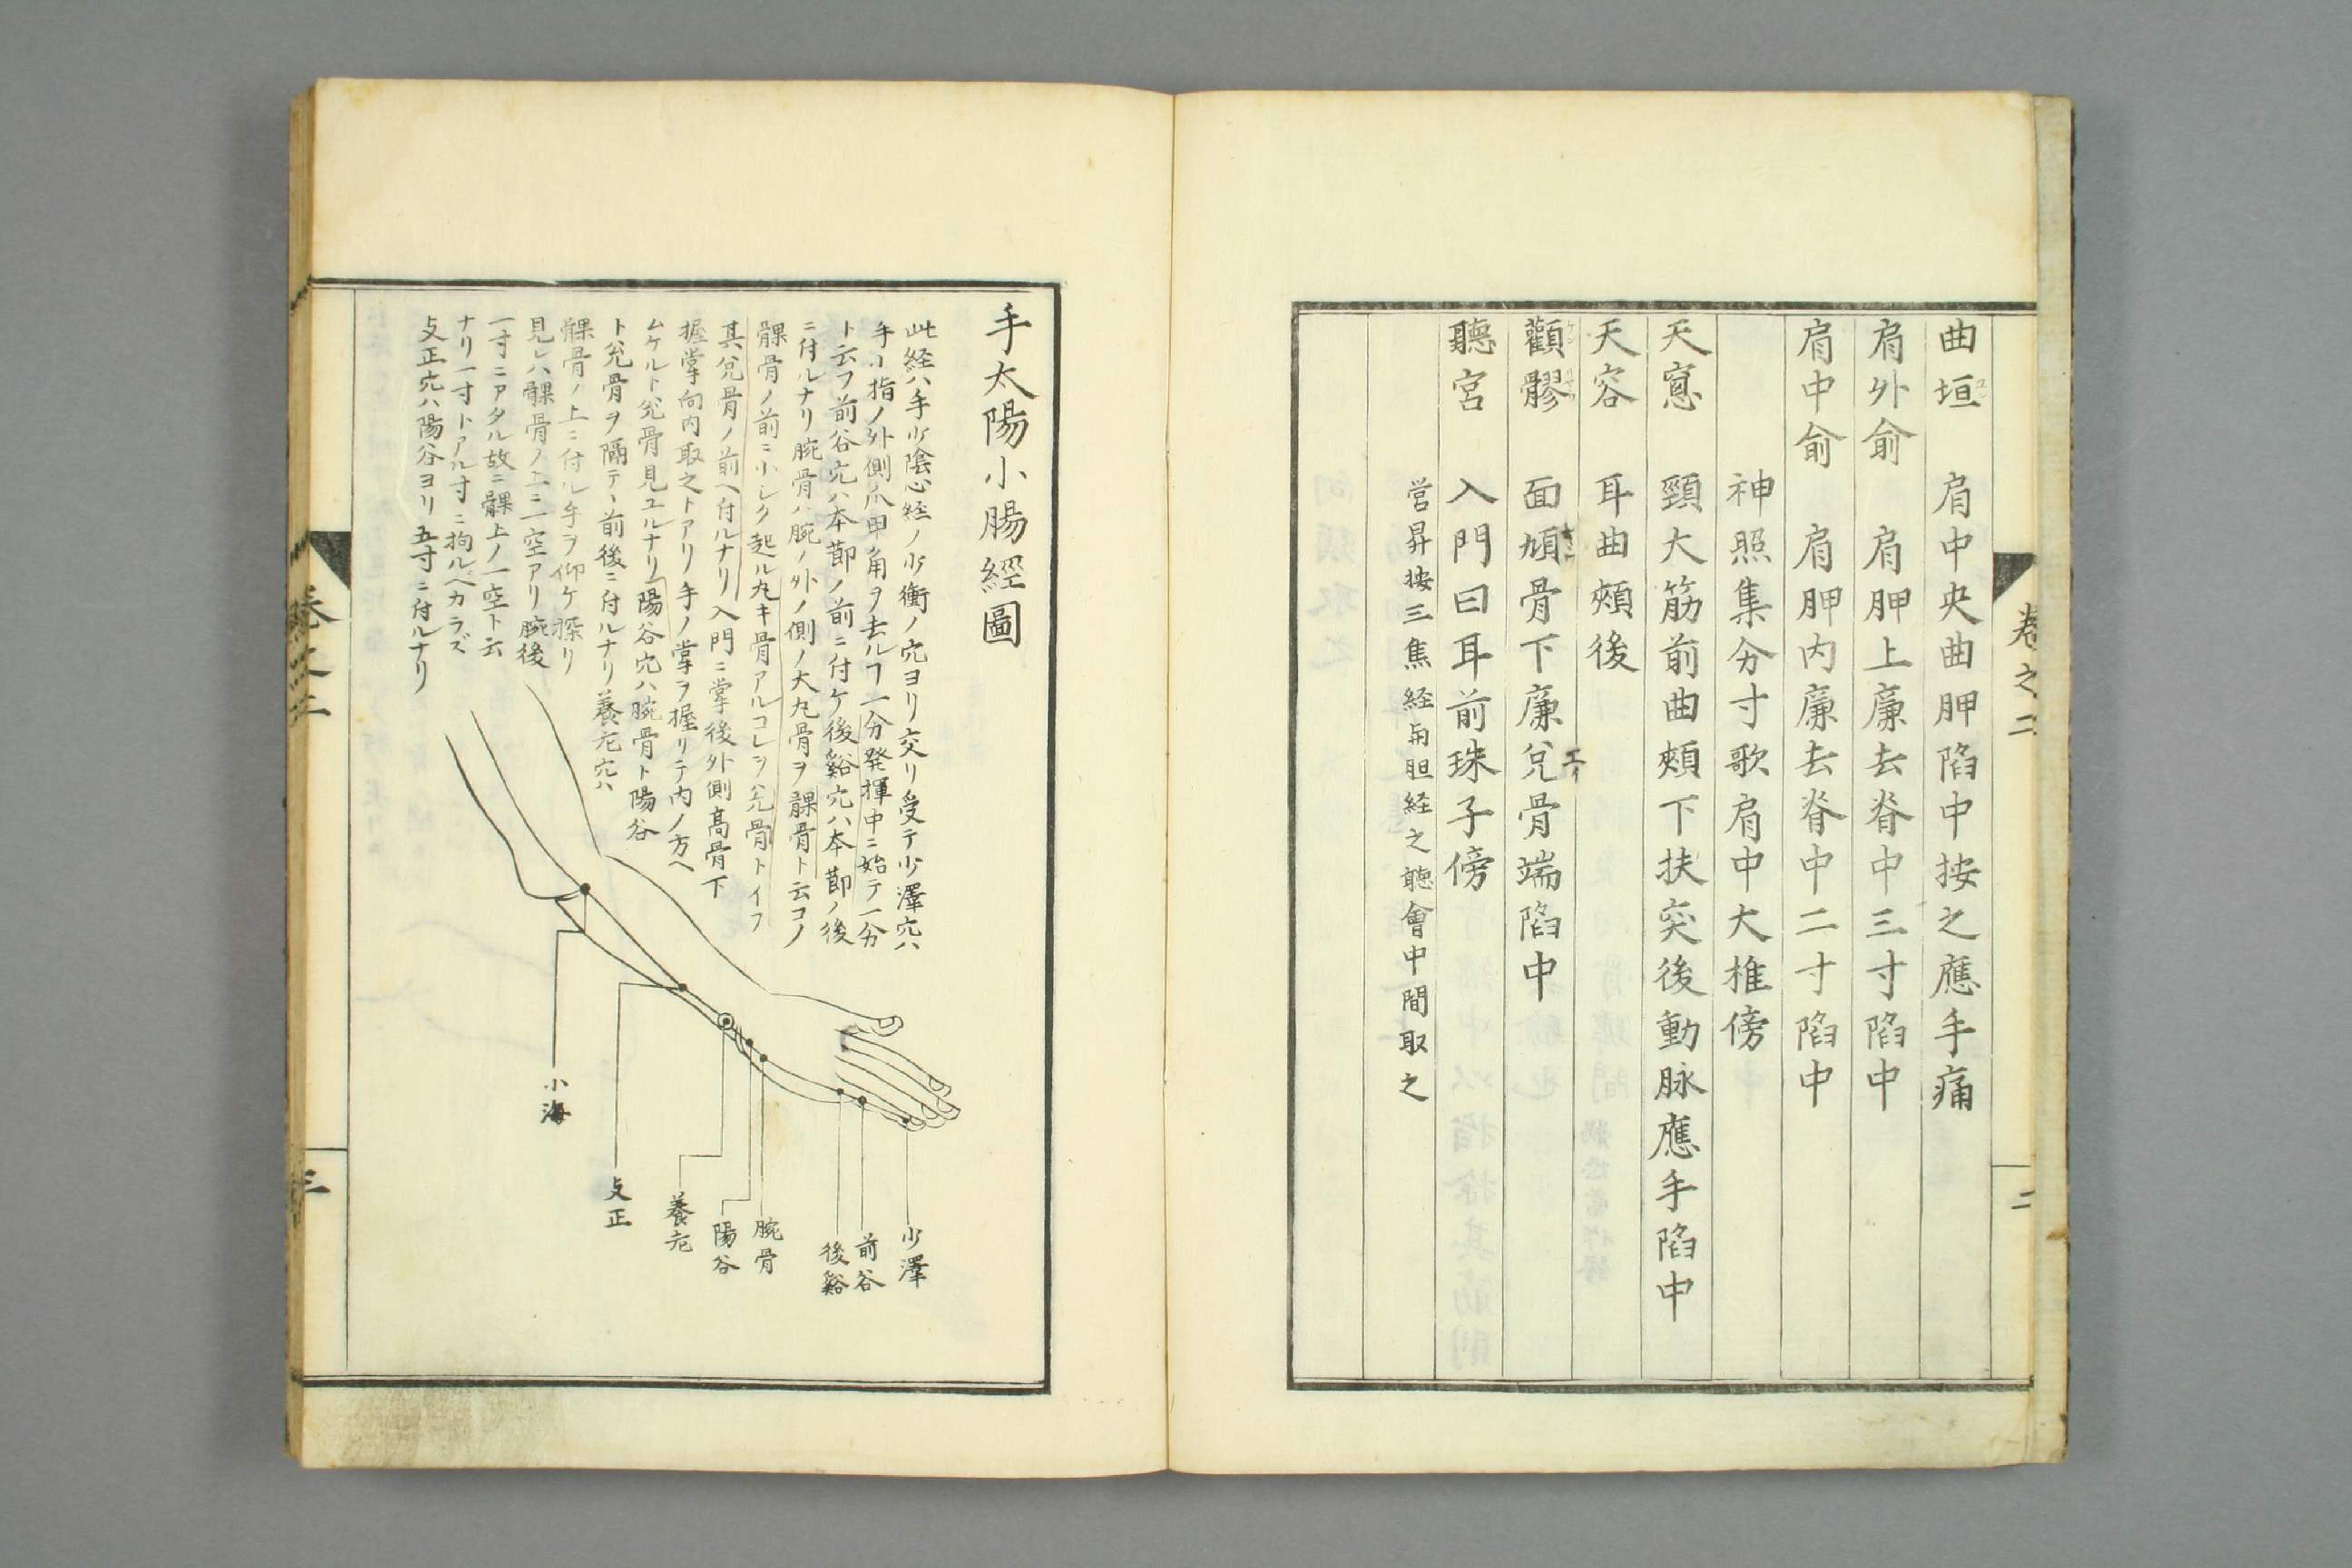 卷之二
二
曲垣 肩中央曲胛陷中按之應手痛
肩外俞 肩胛上廉去脊中三寸陷中
肩中俞 肩胛内廉去脊中二寸陷中
神照集分寸歌肩中大椎傍
天窓 頸大筋前曲頬下扶突後動脉應手陷中
天容 耳曲頬後
顴髎 面頄骨下廉兌骨端陷中
聽宮 入門曰耳前珠子傍
営昇按三焦経与胆経之聴會中間取之
手太陽小腸經圖
此経ハ手少陰心経ノ少衝ノ穴ヨリ交リ受テ少澤穴ハ
手小指ノ外側爪甲ノ角ヲ去ルヿ一分発揮中ニ始テ一分
ト云フ前谷穴ハ本節ノ前ニ付ケ後谿穴ハ本節ノ後
ニ付ルナリ腕骨ハ腕ノ外ノ側ノ大丸骨ヲ髁骨ト云コノ
髁骨ノ前ニ小シク起ル丸キ骨アルコレヲ兊骨トイフ
其兊骨ノ前ヘ付ルナリ入門ニ掌後外側髙骨下
握掌向内取之トアリ手ノ掌ヲ握リテ内ノ方ヘ
ムケルト兊骨見ユルナリ陽谷穴ハ腕骨ト陽谷
ト兊骨ヲ隔テ丶前後ニ付ルナリ養老穴ハ
髁骨ノ上ニ付ル手ヲ仰ケ探リ
見レハ髁骨ノ上ニ一空アリ腕後
一寸ニアタル故ニ髁上ノ一空ト云
ナリ一寸トアル寸ニ拘ルベカラズ
支正穴ハ陽谷ヨリ五寸ニ付ルナリ
少澤
前谷
後谿
腕骨
陽谷
養老
支正
小海
卷之二
三